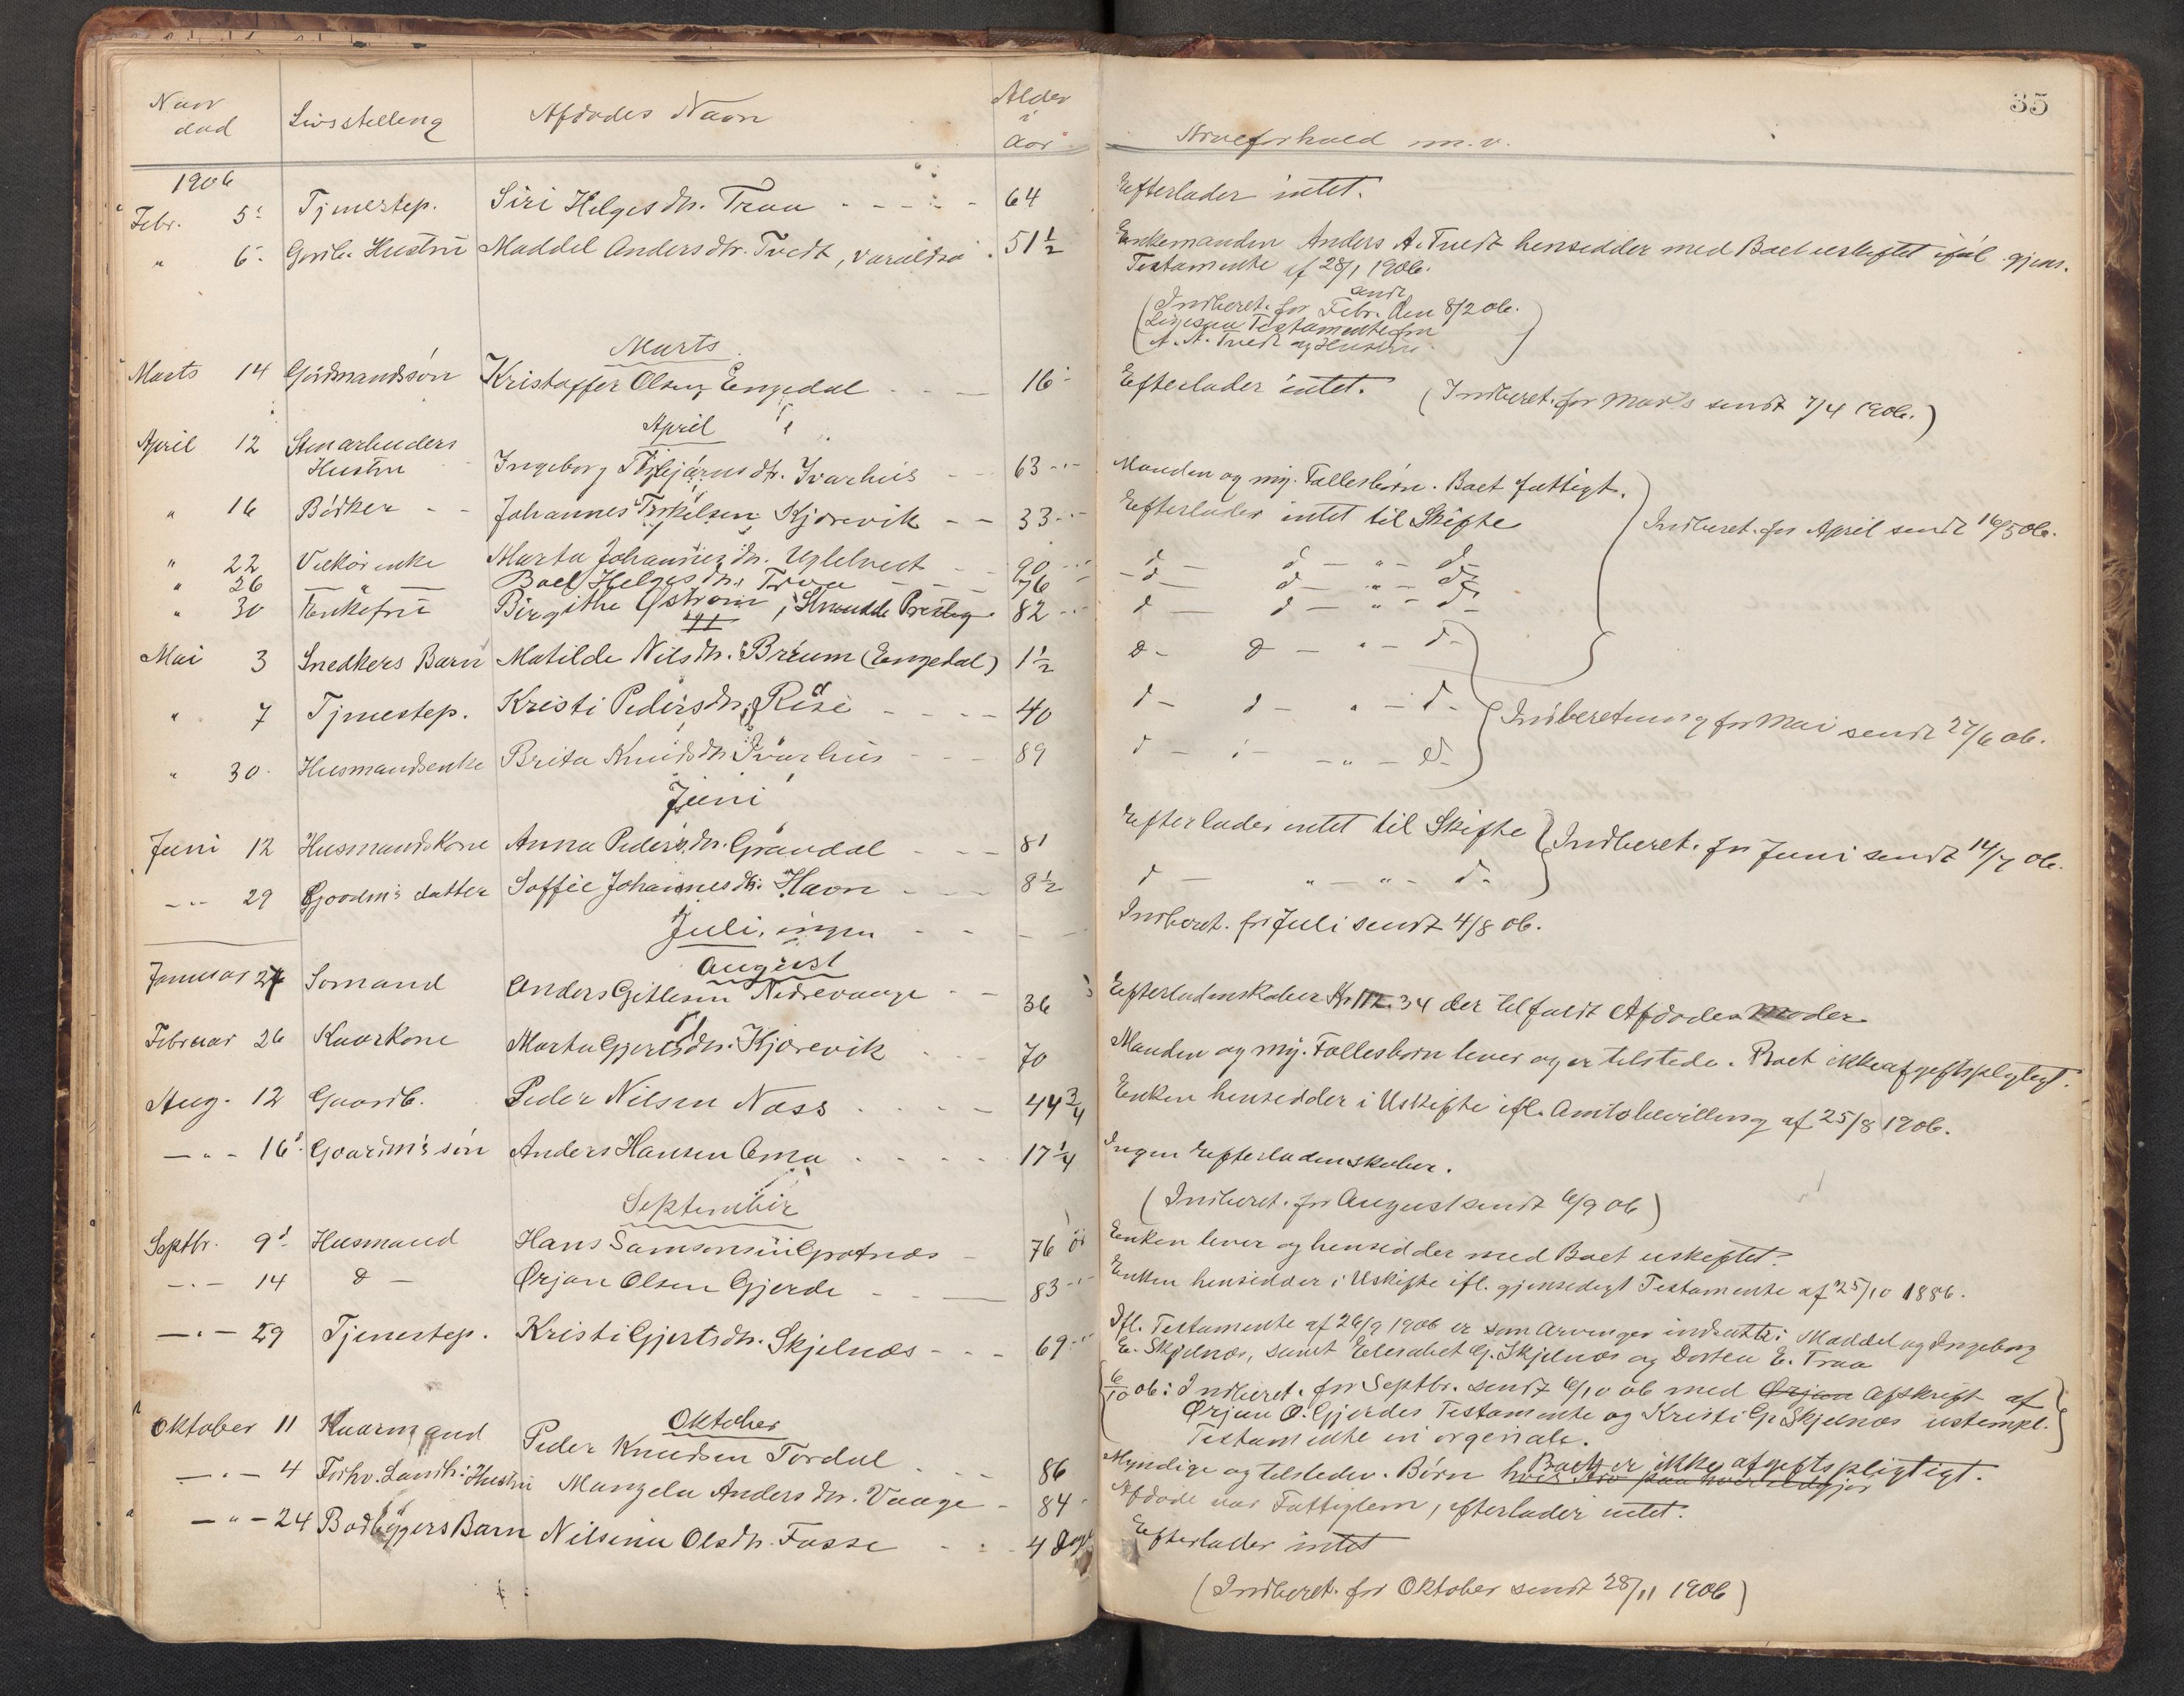 35
Naar død | Livsstilling | Afdødes Navn | Alder i Aar | Arveforhold m.v.
1906
Febr. 5. | Tjenestep. | Siri Helgesdtr. Traa | 64 | Efterlader intet.
" 6. | Gaardb. Hustru | Maddel Andersdtr. Tvedt, Varaldsø | 51 1/2 | Enkemanden Anders A. Tvedt hensidder med Boet uskiftet iføl. gjens.
Testamente af 28/1 1906.
(Indberet. for Febr. sendt den 8/2 06.
Ligesaa Testamente fra
A. A. Tvedt og Hustru.)
Marts
Marts 14 | Gårdmandssøn | Kristoffer Olsen Engedal | 16 | Efterlader intet. (Indberet. for Marts sendt 7/4 1906.)
April
April 12 | Stenarbeiders Hustru | Ingeborg Torbjørnsdtr. Ivarhus | 63 | Manden og myn. Fællesbørn. Boet fattigt.
" 16 | Bødker | Johannes Torkelsen Kjærevik | 33 | Efterlader intet til Skifte
" 22 | Vilkårsenke | Marta Johannesdtr. Uglehvedt | 90 | d — d — " — d —
" 26 | — " — | Boel Helgesdtr. Traa | 76 | — d — d — " — d —
" 30 | Enkefru | Birgithe Østrem, Strandde Presteg. | 82 | d — d — " — d —
Indberet. for April sendt 16/5 06.
Mai 3 | Snedkers Barn | Matilde Nilsdtr. Breum (Engedal) | 1 1/2 | d — d — " — d —
" 7 | Tjenestep. | Kristi Pedersdtr. Røse | 40 | d — d — " — d —
" 30. | Husmandsenke | Brita Knudsdtr. Ivarhus | 89 | d — " — " — d —
Indberetning for Mai sendt 27/6 06.
Juni
Juni 12 | Husmandskone | Anna Pedersdtr. Gravdal | 81 | Efterlader intet til Skifte
— " — 29 | Gaardm's datter | Soffie Johannesdtr. Havn | 8 1/2 | d — " — " — d —
Indberet. for Juni sendt 14/7 06.
Juli, ingen | Indberet. for Juli sendt 4/8 06.
August
Januar 24 | Sømand | Anders Gitlesen Nedrevaage | 36 | Efterladenskaber Kr 112.34 der tilfaldt Afdødes Moder
Februar 26 | Kaarkone | Marta Gjertsdtr. Kjærevik | 70 | Manden og myn. Fællesbørn lever og er tilstede. Boet ikke afgiftspligtigt.
Aug. 12 | Gaardb. | Peder Nilsen Næss | 44 3/4 | Enken hensidder i Uskifte ifl. Amtsbevilling af 25/8 1906.
— " — 16 | Gaardm's søn | Anders Hansen Oma | 17 1/4 | Ingen Efterladenskaber.
(Indberet. for August sendt 6/9 06)
September
Septbr. 9 | Husmand | Hans Samsonsen Grotnæs | 76 | Enken lever og hensidder med Boet uskiftet.
— " — 14 | d — | Ørjan Olsen Gjerde | 83 | Enken hensidder i Uskifte ifl. gjensidigt Testamente af 25/10 1886.
— " — 29 | Tjenestep. | Kristi Gjertsdtr. Skjelnæs | 69 | Ifl. Testamente af 26/9 1906 er som Arvinger indsatte: Maddel og Ingeborg
E. Skjelnæs, samt Elisabet G. Skjelnæs og Dortea E. Traa
6/10 06: Indberet. for Septbr. sendt 6/10 06 med Ørjan Afskrift af
Ørjan O. Gjerdes Testamente og Kristi G. Skjelnæs ustempl.
Testamente in originale.
Oktober
Oktober 11 | Kaarmand | Peder Knudsen Tordal | 86 | Myndige og tilstedev. Børn hvis Arv Boet er ikke afgiftspligtigt.
— " — 4 | Forhv. Landh. Hustru | Mangela Andersdtr. Vaage | 84 | Afdøde var Fattiglem, efterlader intet.
— " — 24 | Baadbyggers Barn | Nilsine Olsdtr. Fosse | 4 Dage | Efterlader intet
(Indberet. for Oktober sendt 28/11 1906)